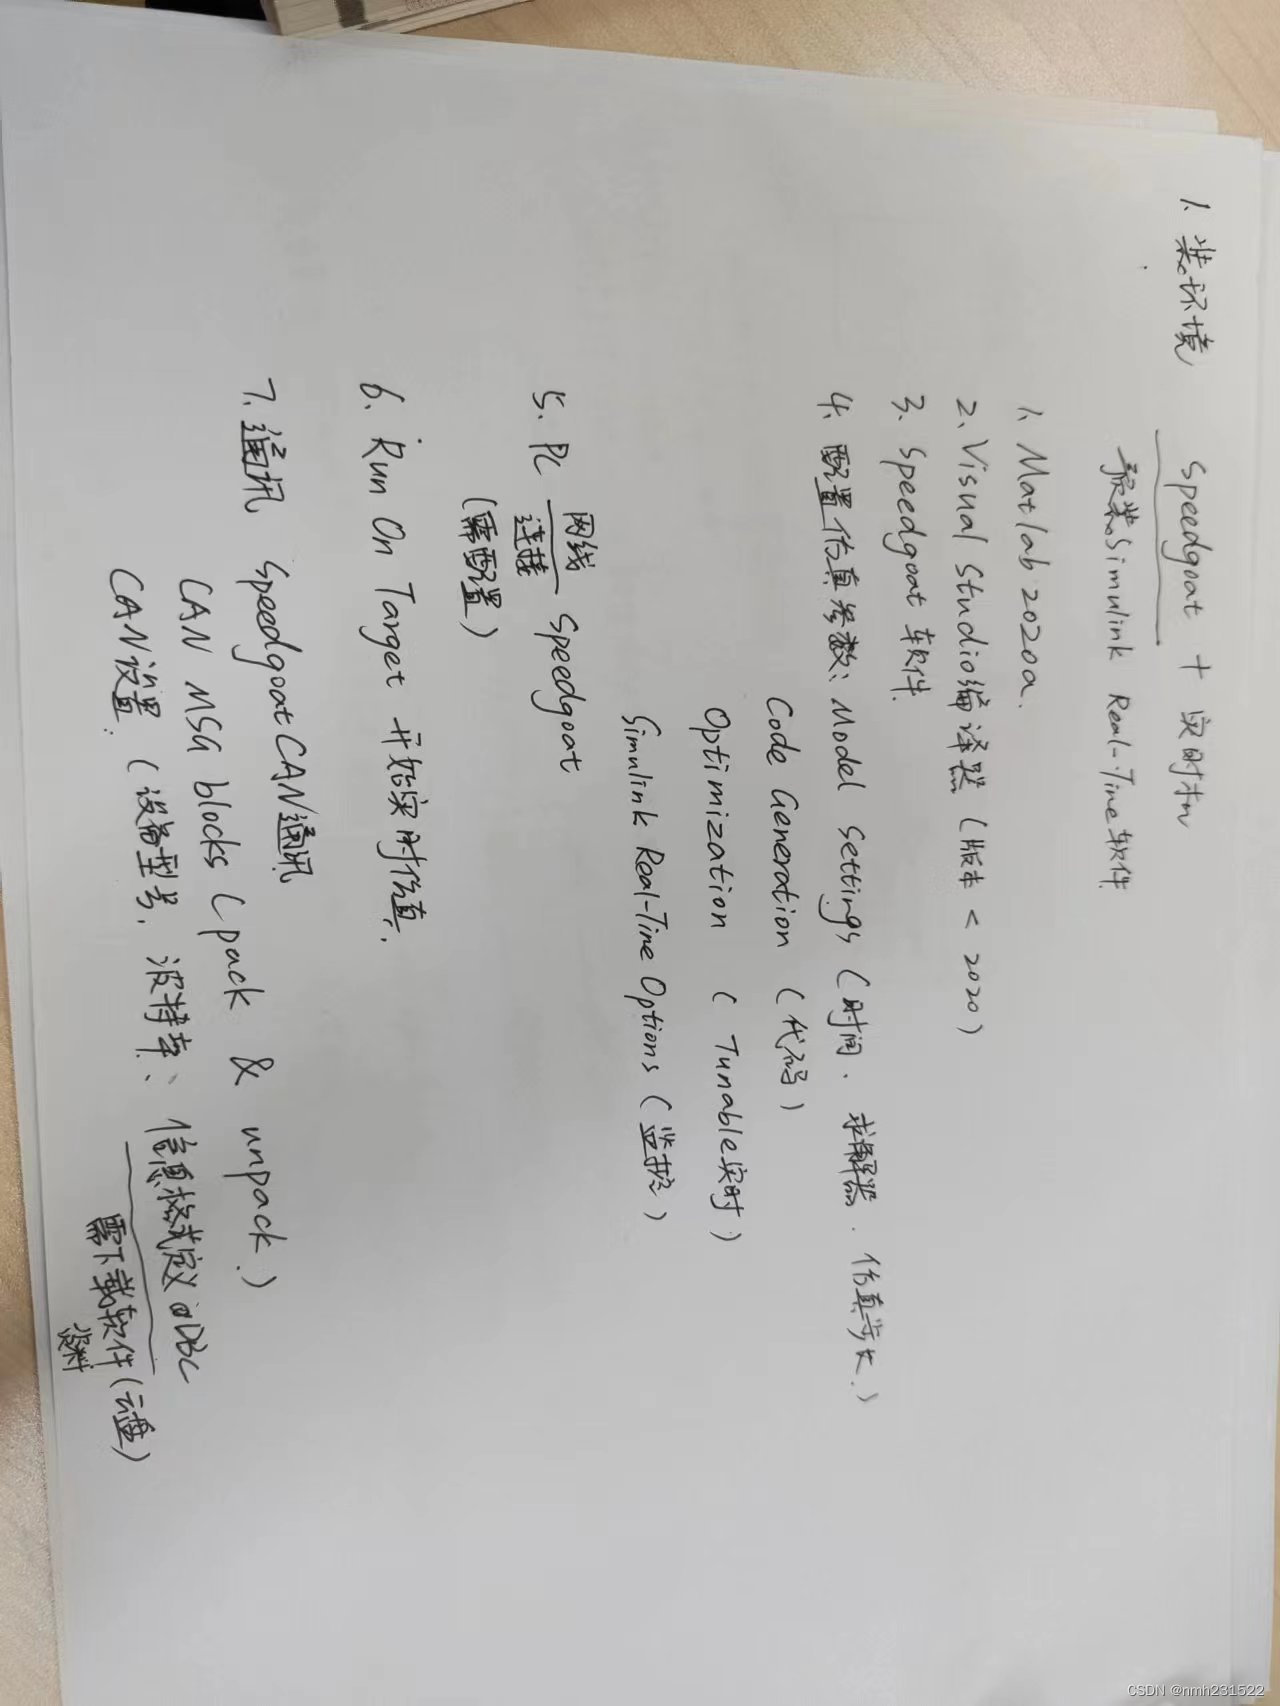 1、装环境 Speedgoat + 实时机
预装Simulink Real-Time软件
1、Matlab 2020a.
2、Visual Studio编译器 (版本 < 2020)
3、Speedgoat 软件
4、配置仿真参数: Model Settings (时间. 求解器. 仿真步长.)
Code Generation (代码)
Optimization (Tunable实时)
Simulink Real-Time Options (监控)
5、PC 网线连接 Speedgoat
(需配置)
6、Run On Target 开始实时仿真.
7、通讯 SpeedgoatCAN通讯
CAN MSG blocks (pack & unpack.)
CAN设置. (设备型号, 波特率、信息格式定义 DBC
需下载软件 (云盘)
资料
CSDN @nmh231522